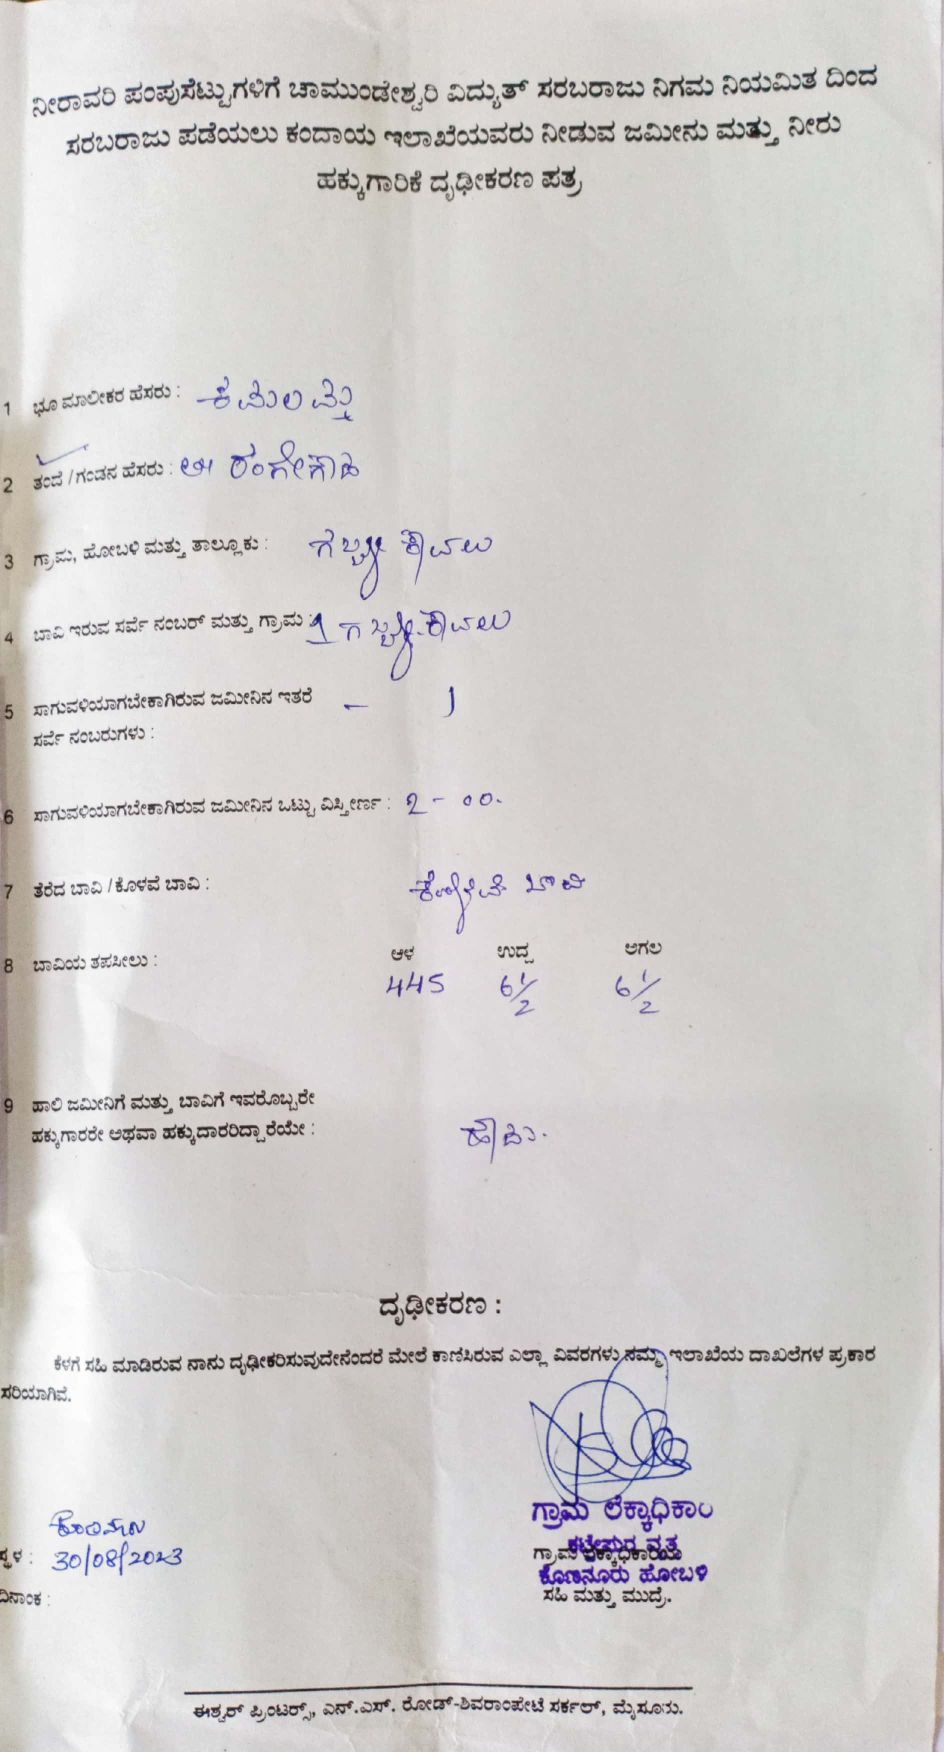 ನೀರಾವರಿ ಪಂಪುಸೆಟ್ಟುಗಳಿಗೆ ಚಾಮುಂಡೇಶ್ವರಿ ವಿದ್ಯುತ್ ಸರಬರಾಜು ನಿಗಮ ನಿಯಮಿತ ದಿಂದ
ಸರಬರಾಜು ಪಡೆಯಲು ಕಂದಾಯ ಇಲಾಖೆಯವರು ನೀಡುವ ಜಮೀನು ಮತ್ತು ನೀರು
ಹಕ್ಕುಗಾರಿಕೆ ದೃಢೀಕರಣ ಪತ್ರ
1 ಭೂ ಮಾಲೀಕರ ಹೆಸರು : ಕಮಲಮ್ಮ
2 ತಂದೆ / ಗಂಡನ ಹೆಸರು : ರಂಗೇಗೌಡ
3 ಗ್ರಾಮ, ಹೋಬಳಿ ಮತ್ತು ತಾಲ್ಲೂಕು : ಕಾವಲು
4 ಬಾವಿ ಇರುವ ಸರ್ವೆ ನಂಬರ್ ಮತ್ತು ಗ್ರಾಮ : 1 ಕಾವಲು
5 ಸಾಗುವಳಿಯಾಗಬೇಕಾಗಿರುವ ಜಮೀನಿನ ಇತರೆ – 1
ಸರ್ವೆ ನಂಬರುಗಳು :
6 ಸಾಗುವಳಿಯಾಗಬೇಕಾಗಿರುವ ಜಮೀನಿನ ಒಟ್ಟು ವಿಸ್ತೀರ್ಣ : 2 - 00.
7 ತೆರೆದ ಬಾವಿ / ಕೊಳವೆ ಬಾವಿ : ಕೊಳವೆ ಬಾವಿ
8 ಬಾವಿಯ ತಪಸೀಲು : ಆಳ ಉದ್ದ ಅಗಲ
445 6 1/2 6 1/2
9 ಹಾಲಿ ಜಮೀನಿಗೆ ಮತ್ತು ಬಾವಿಗೆ ಇವರೊಬ್ಬರೇ
ಹಕ್ಕುಗಾರರೇ ಅಥವಾ ಹಕ್ಕುದಾರರಿದ್ದಾರೆಯೇ : ಹೌದು.
ದೃಢೀಕರಣ :
ಕೆಳಗೆ ಸಹಿ ಮಾಡಿರುವ ನಾನು ದೃಢೀಕರಿಸುವುದೇನೆಂದರೆ ಮೇಲೆ ಕಾಣಿಸಿರುವ ಎಲ್ಲಾ ವಿವರಗಳು ನಮ್ಮ ಇಲಾಖೆಯ ದಾಖಲೆಗಳ ಪ್ರಕಾರ
ಸರಿಯಾಗಿವೆ.
ಗ್ರಾಮ ಲೆಕ್ಕಾಧಿಕಾರಿ
ಕಟ್ಟೇಪುರ ವೃತ್ತ
ಸ್ಥಳ : 30/08/2023 ಗ್ರಾಮ ಲೆಕ್ಕಾಧಿಕಾರಿಯ
ಕೊಣನೂರು ಹೋಬಳಿ
ದಿನಾಂಕ : ಸಹಿ ಮತ್ತು ಮುದ್ರೆ.
ಈಶ್ವರ್ ಪ್ರಿಂಟರ್ಸ್, ಎನ್.ಎಸ್. ರೋಡ್-ಶಿವರಾಂಪೇಟೆ ಸರ್ಕಲ್, ಮೈಸೂರು.